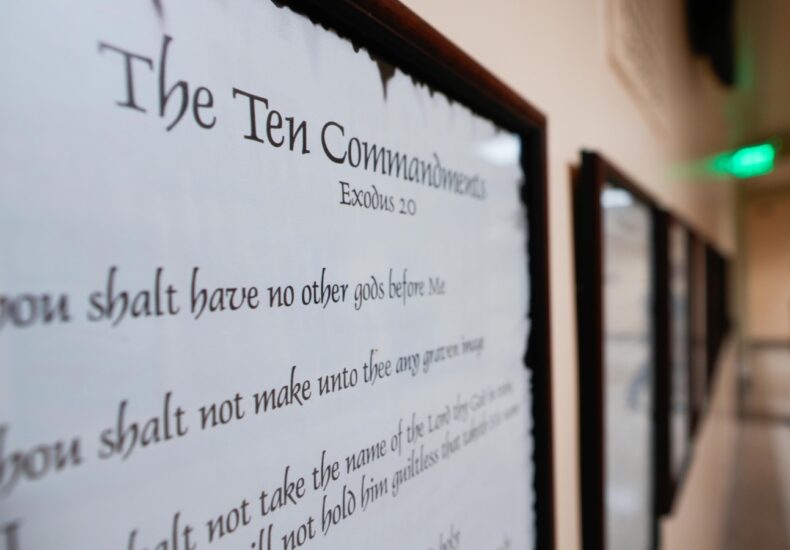 The Ten Commandments
Exodus 20
hou shalt have no other gods before Me
hou shalt not make unto thee any graven image
shalt not take the name of the Lord thy God in vain,
will not hold him guiltless that taketh his name
holy